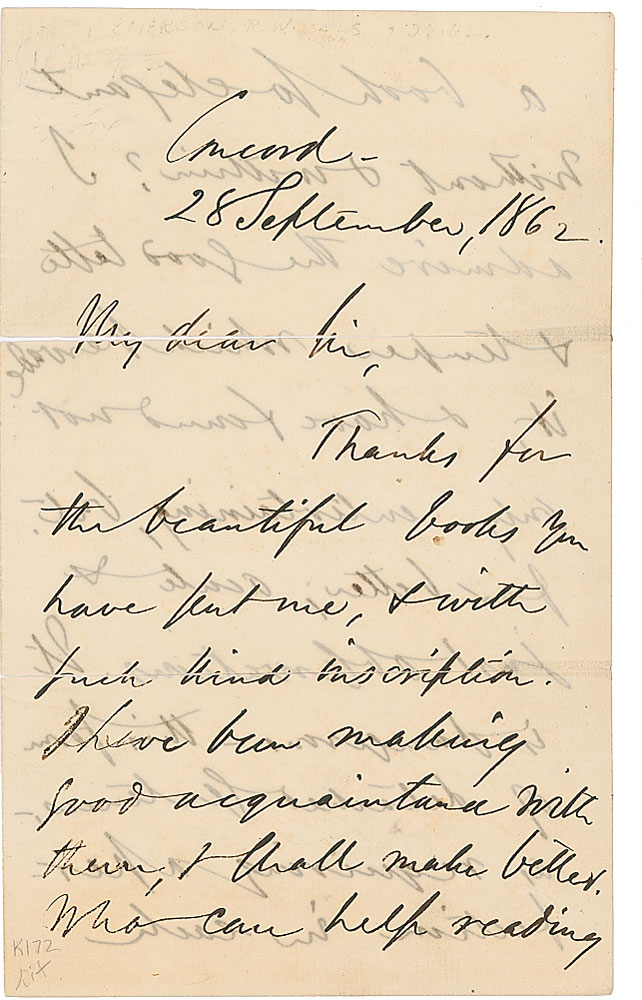 EMERSON, R.W.
Concord –
28 September, 1862.
My dear Sir,
Thanks for
the beautiful books you
have sent me, & with
such kind inscription.
I have been making
good acquaintance with
them, & shall make better.
Who can help reading
K172